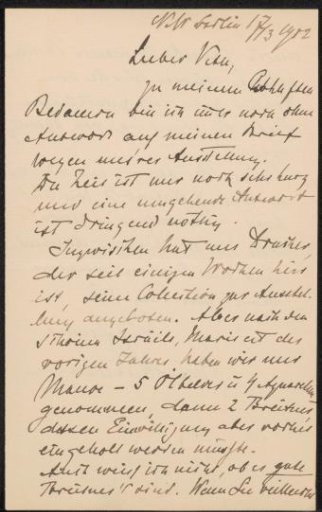 N.W. Berlin 17/3 1902
Lieber Veth,
zu meinem lebhaften
Bedauern bin ich immer noch ohne
Antwort auf meinen Brief
wegen unserer Ausstellung.
Die Zeit ist nur noch sehr kurz
und eine umgehende Antwort
ist dringend nöthig.
Inzwischen hat uns
der seit einigen Wochen hier
ist, seine Collection zur Ausstel-
lung angeboten. Aber nach den
schönen Israëls, Maris etc des
vorigen Jahres haben wir nur
Mauve – 5 Ölbilder u 4 Aquarelle
genommen, dann 2 Breitner,
dessen Einwilligung aber vorher
eingeholt werden müsste.
Auch weiss ich nicht, ob es gute
Breitner's sind. Wenn Sie vielleicht